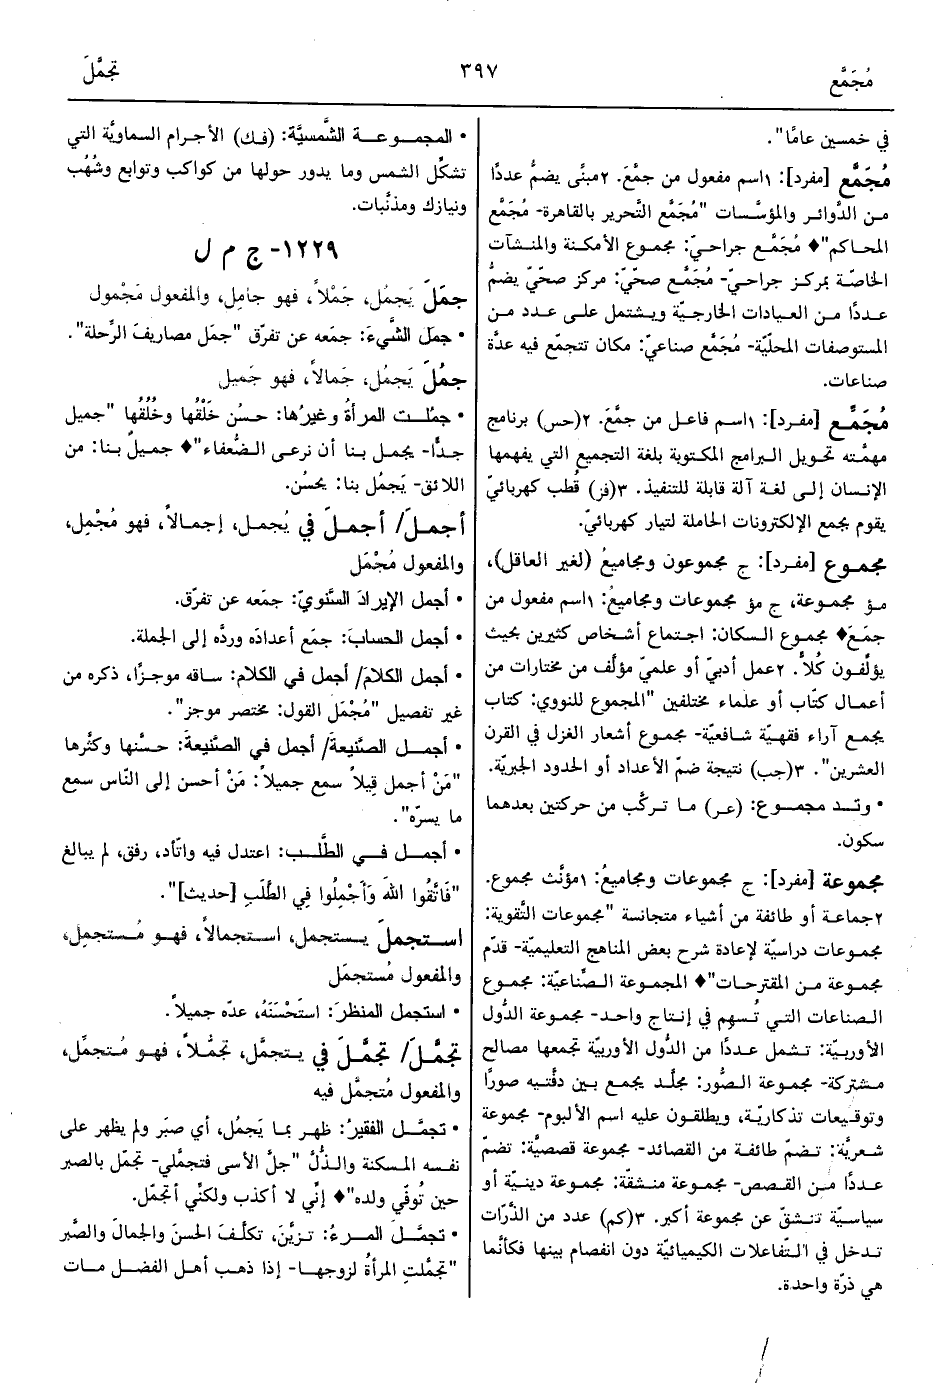 مُجَمَّع
٣٩٧
تجمَّلَ
في خمسين عامًا".
مُجَمَّع [مفرد]: ١اسم مفعول من جمَّعَ. ٢مبنًى يضمُّ عددًا
من الدَّوائر والمؤسَّسات "مُجَمَّع التَّحرير بالقاهرة- مُجَمَّع
المحاكم"♦ مُجَمَّع جراحيّ: مجموع الأمكنة والمنشآت
الخاصّة بمركز جراحيّ- مُجَمَّع صحّيّ: مركز صحّيّ يضمُّ
عددًا من العيادات الخارجيّة ويشتمل على عدد من
المستوصفات المحليّة- مُجَمَّع صناعيّ: مكان تتجمّع فيه عدَّة
صناعات.
مُجَمِّع [مفرد]: ١اسم فاعل من جمَّعَ. ٢(حس) برنامج
مهمَّته تحويل البرامج المكتوبة بلغة التجميع التي يفهمها
الإنسان إلى لغة آلة قابلة للتنفيذ. ٣(فز) قُطب كهربائيّ
يقوم بجمع الإلكترونات الحاملة لتيار كهربائيّ.
مجموع [مفرد]: ج مجموعون ومجاميعُ (لغير العاقل)،
مؤ مجموعة، ج مؤ مجموعات ومجاميعُ: ١اسم مفعول من
جمَعَ♦ مجموع السكان: اجتماع أشخاص كثيرين بحيث
يؤلَّفون كُلاًّ. ٢عمل أدبيّ أو علميّ مؤلَّف من مختارات من
أعمال كتّاب أو علماء مختلفين "المجموع للنووي: كتاب
يجمع آراء فقهيّة شافعيّة- مجموع أشعار الغزل في القرن
العشرين". ٣(جب) نتيجة ضمّ الأعداد أو الحدود الجبريّة.
• وتد مجموع: (عر) ما تركَّب من حركتين بعدهما
سكون.
مجموعة [مفرد]: ج مجموعات ومجاميعُ: ١مؤنَّث مجموع.
٢جماعة أو طائفة من أشياء متجانسة "مجموعات التَّقوية:
مجموعات دراسيّة لإعادة شرح بعض المناهج التعليميّة- قدّم
مجموعة من المقترحات"♦ المجموعة الصِّناعيّة: مجموع
الصناعات التي تُسهم في إنتاج واحد- مجموعة الدّول
الأوربيّة: تشمل عددًا من الدُّول الأوربيّة تجمعها مصالح
مشتركة- مجموعة الصُّور: مجلَّد يجمع بين دفَّتيه صورًا
وتوقيعات تذكاريّة، ويطلقون عليه اسم الألبوم- مجموعة
شعريَّة: تضمّ طائفة من القصائد- مجموعة قصصيَّة: تضمّ
عددًا من القصص- مجموعة منشقّة: مجموعة دينيّة أو
سياسيّة تنشقّ عن مجموعة أكبر. ٣(كم) عدد من الذَّرّات
تدخل في التّفاعلات الكيميائيّة دون انفصام بينها فكأنَّما
هي ذرّة واحدة.
• المجموعة الشَّمسيَّة: (فك) الأجرام السماويَّة التي
تشكِّل الشمس وما يدور حولها من كواكب وتوابع وشُهُب
ونيازك ومذنَّبات.
١٢٢٩- ج م ل
جمَلَ يَجمُل، جَمْلاً، فهو جامِل، والمفعول مَجْمول
• جمَل الشَّيءَ: جمَعه عن تفرّق "جمَل مصاريفَ الرِّحلة".
جمُلَ يَجمُل، جَمالاً، فهو جَميل
• جمُلت المرأةُ وغيرُها: حسُن خَلْقُها وخُلُقُها "جميل
جدًّا- يجمل بنا أن نرعى الضُّعفاء"♦ جميلٌ بنا: من
اللائق- يَجمُل بنا: يحسُن.
أجملَ/ أجملَ في يُجمل، إجمالاً، فهو مُجْمِل،
والمفعول مُجْمَل
• أجمل الإيرادَ السَّنويّ: جمَعه عن تفرّق.
• أجمل الحسابَ: جمَع أعدادَه وردَّه إلى الجملة.
• أجمل الكلامَ/ أجمل في الكلام: ساقه موجزًا، ذكره من
غير تفصيل "مُجْمَل القول: مختصر موجز".
• أجمل الصَّنيعةَ/ أجمل في الصَّنيعة: حسَّنها وكثَّرها
"مَنْ أجمل قيلاً سمع جميلاً: مَنْ أحسن إلى النّاس سمع
ما يسرّه".
• أجمل في الطَّلب: اعتدل فيه واتأد، رفق، لم يبالغ
"فَاتَّقُوا اللهَ وَأَجْمِلُوا فِي الطَّلَبِ [حديث]".
استجملَ يستجمل، استجمالاً، فهو مُستجمِل،
والمفعول مُستجمَل
• استجمل المنظرَ: استَحْسَنَهُ، عدّه جميلاً.
تجمَّلَ/ تجمَّلَ في يتجمَّل، تجمُّلاً، فهو مُتجمِّل،
والمفعول مُتجمَّل فيه
• تجمَّل الفقيرُ: ظهر بما يَجمُل، أي صبَر ولم يظهر على
نفسه المسكنة والذُّلَّ "جلَّ الأسى فتجمَّلي- تجمَّل بالصبر
حين تُوفّي ولده"♦ إنَّي لا أكذب ولكنِّي أتجمّل.
• تجمَّل المرءُ: تزيَّن، تكلَّف الحسنَ والجمالَ والصَّبر
"تجمَّلتِ المرأةُ لزوجها- إذا ذهب أهل الفضل مات